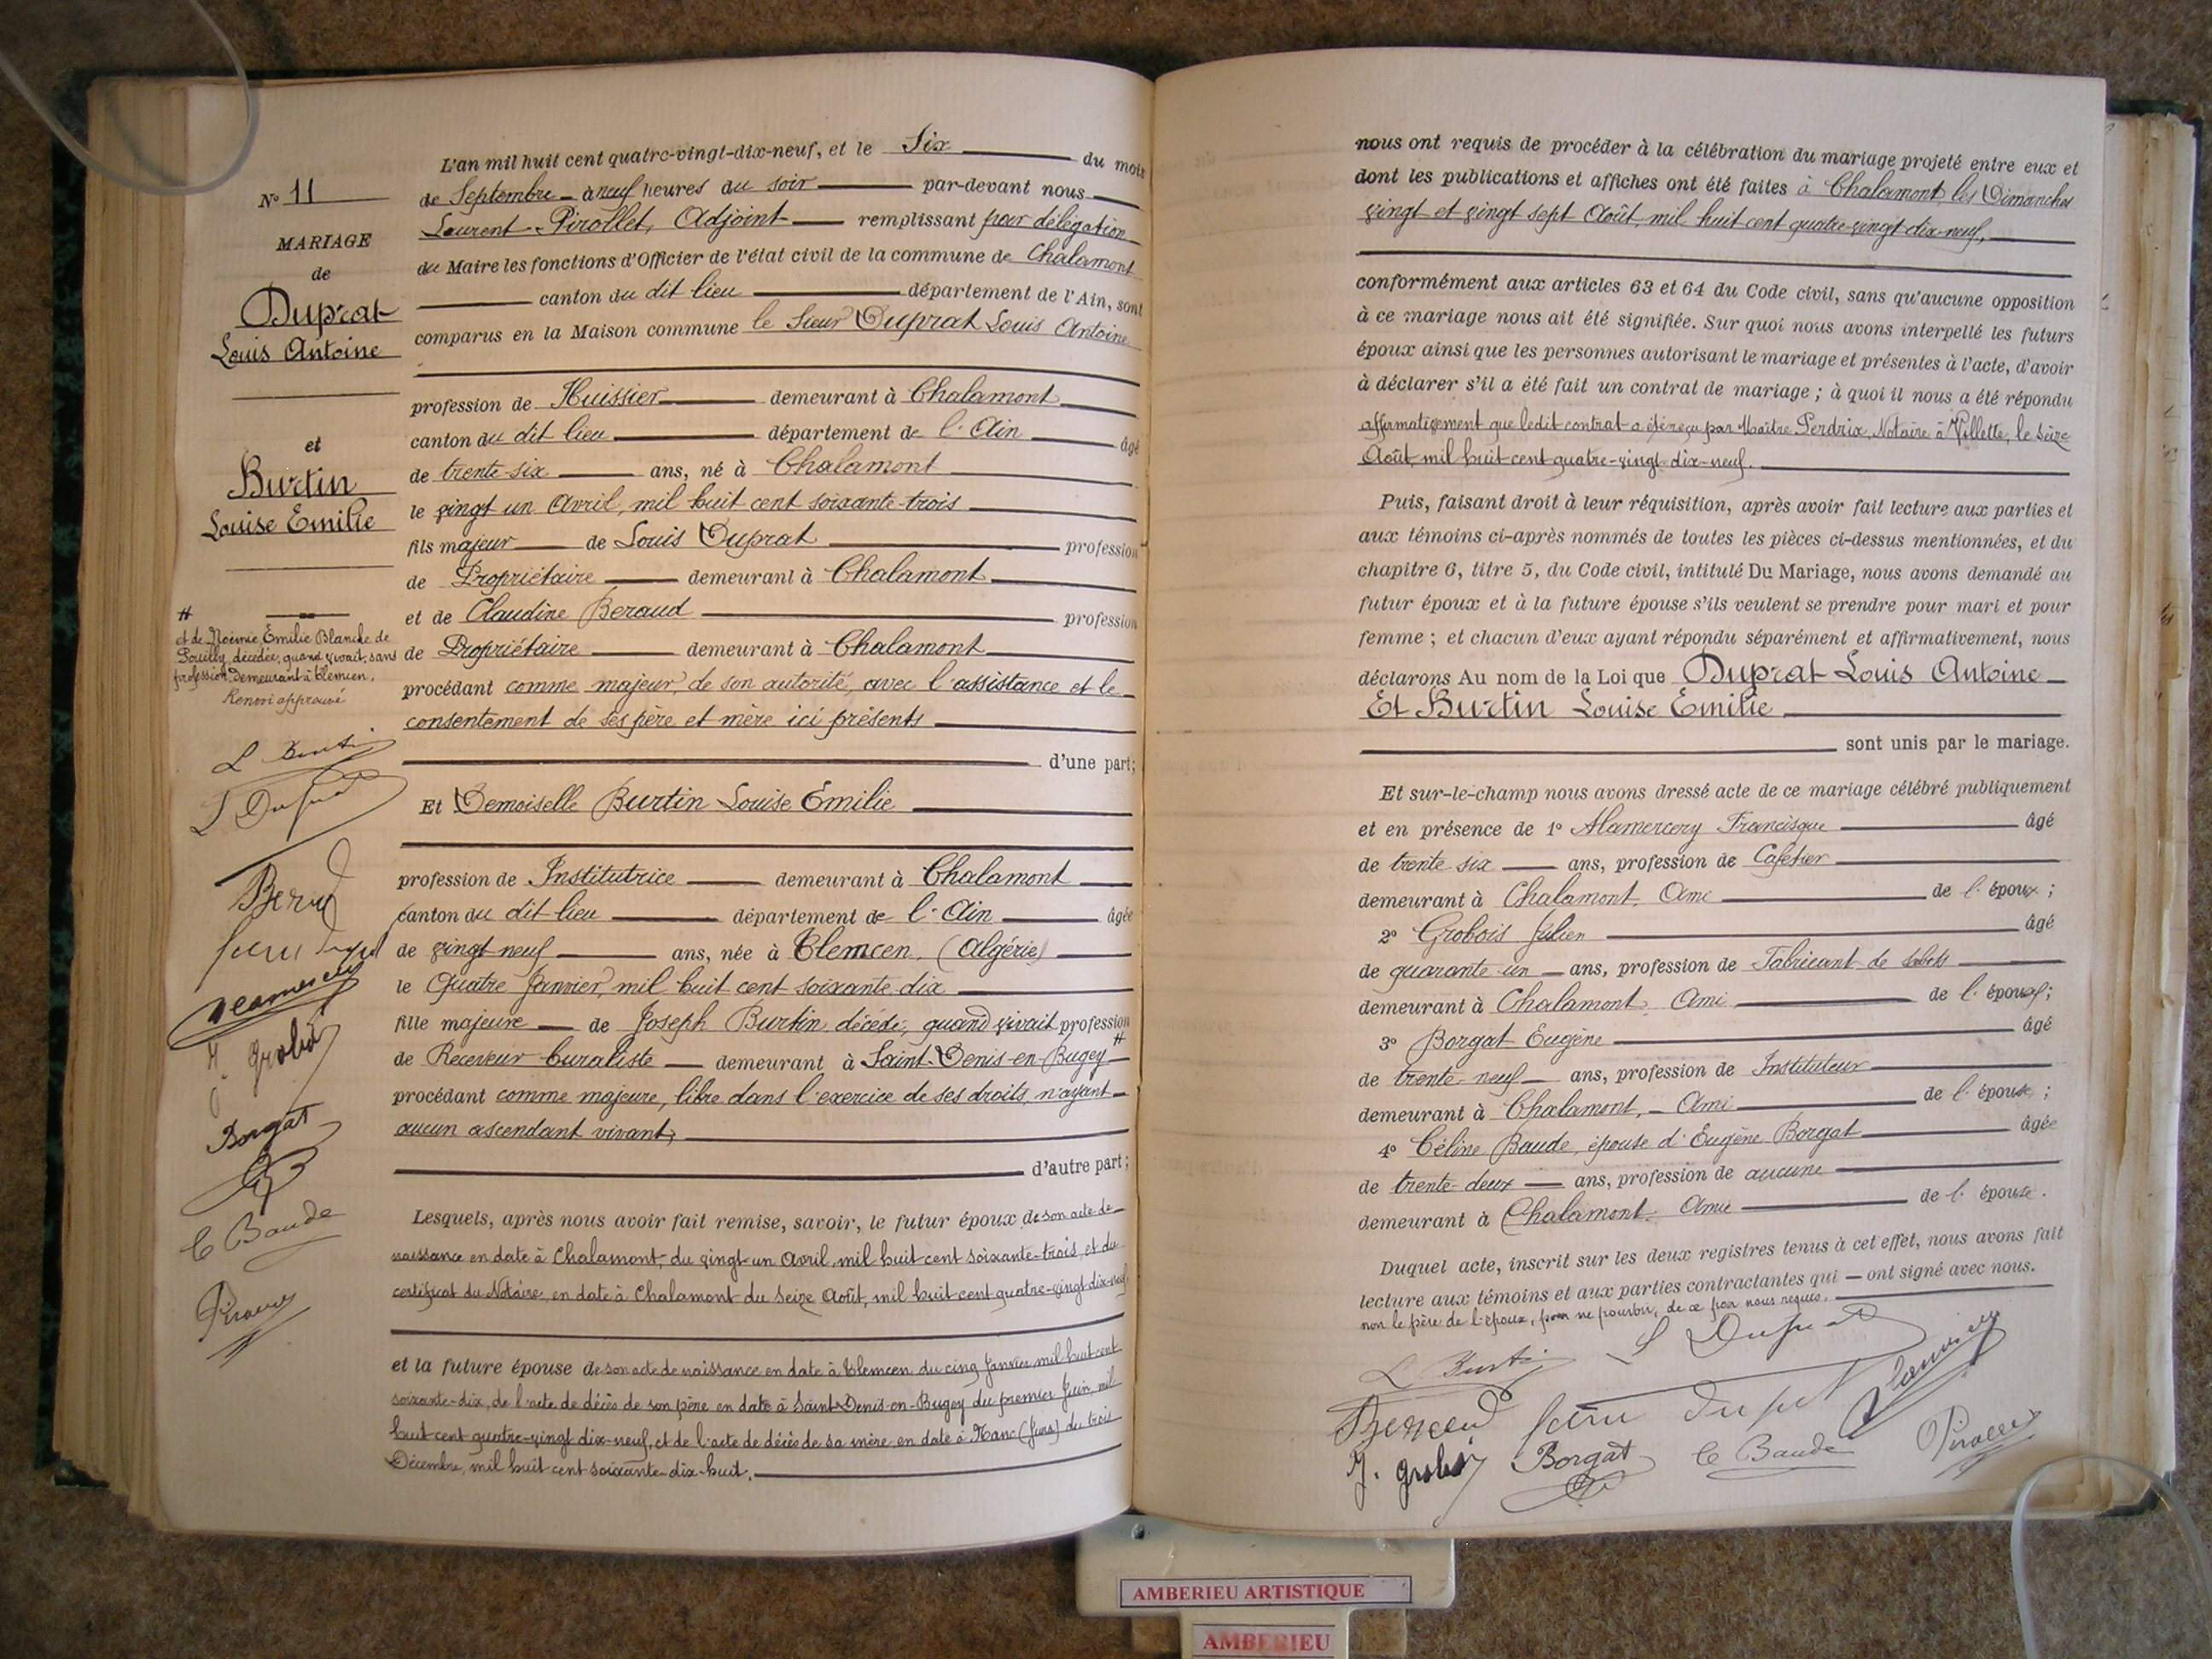 N° 11
MARIAGE
de
Duprat
Louis Antoine
et
Burtin
Louise Emilie
#
et de Noémie Emilie Blanche de
Pouilly, décédée, quand vivait, sans
profession, demeurant à Tlemcen.
Renvoi approuvé
L Burtin
L Duprat
Borgat
C Baude
L'an mil huit cent quatre-vingt-dix-neuf, et le Six du mois
de Septembre à neuf heures du soir par-devant nous
Laurent Pirollet, Adjoint remplissant par délégation
du Maire les fonctions d'Officier de l'état civil de la commune de Chalamont
canton du dit lieu département de l'Ain, sont
comparus en la Maison commune le Sieur Duprat Louis Antoine
profession de Huissier demeurant à Chalamont
canton du dit lieu département de l'Ain âgé
de trente-six ans, né à Chalamont
le vingt un Avril, mil huit cent soixante-trois
fils majeur de Louis Duprat profession
de Propriétaire demeurant à Chalamont
et de Claudine Beraud profession
de Propriétaire demeurant à Chalamont
procédant comme majeur, de son autorité, avec l'assistance et le
consentement de ses père et mère ici présents
d'une part;
Et Demoiselle Burtin Louise Emilie
profession de Institutrice demeurant à Chalamont
canton du dit lieu département de l'Ain âgée
de vingt neuf ans, née à Tlemcen (Algérie)
le Quatre Janvier, mil huit cent soixante dix
fille majeure de Joseph Burtin décédé, quand vivait profession
de Receveur buraliste demeurant à Saint-Denis-en-Bugey #
procédant comme majeure, libre dans l'exercice de ses droits, n'ayant
aucun ascendant vivant,
d'autre part;
Lesquels, après nous avoir fait remise, savoir, le futur époux de son acte de
naissance en date à Chalamont, du vingt-un Avril, mil huit cent soixante-trois, et du
certificat du Notaire, en date à Chalamont du Seize Août, mil huit cent quatre-vingt-dix-neuf,
et la future épouse de son acte de naissance en date à Tlemcen du cinq Janvier mil huit cent
soixante-dix, de l'acte de décès de son père en date à Saint-Denis-en-Bugey du premier Juin, mil
huit cent quatre-vingt dix-neuf, et de l'acte de décès de sa mère en date à (Jura) du trois
Décembre, mil huit cent soixante-dix-huit.
nous ont requis de procéder à la célébration du mariage projeté entre eux et
dont les publications et affiches ont été faites à Chalamont, les Dimanches
vingt et vingt sept Août, mil huit cent quatre-vingt-dix-neuf,
conformément aux articles 63 et 64 du Code civil, sans qu'aucune opposition
à ce mariage nous ait été signifiée. Sur quoi nous avons interpellé les futurs
époux ainsi que les personnes autorisant le mariage et présentes à l'acte, d'avoir
à déclarer s'il a été fait un contrat de mariage; à quoi il nous a été répondu
affirmativement que ledit contrat a été reçu par Maître Perdrix, Notaire à Villette, le Seize
Août, mil huit-cent quatre-vingt dix-neuf.
Puis, faisant droit à leur réquisition, après avoir fait lecture aux parties et
aux témoins ci-après nommés de toutes les pièces ci-dessus mentionnées, et du
chapitre 6, titre 5, du Code civil, intitulé Du Mariage, nous avons demandé au
futur époux et à la future épouse s'ils veulent se prendre pour mari et pour
femme; et chacun d'eux ayant répondu séparément et affirmativement, nous
déclarons Au nom de la Loi que Duprat Louis Antoine
Et Burtin Louise Emilie
sont unis par le mariage.
Et sur-le-champ nous avons dressé acte de ce mariage célébré publiquement
et en présence de 1° Alamercery Francisque âgé
de trente six ans, profession de Cafetier
demeurant à Chalamont, Ami de l'époux;
2° Grobois Julien âgé
de quarante-un ans, profession de Fabricant de sabots
demeurant à Chalamont, Ami de l'époux;
3° Borgat Eugène âgé
de trente-neuf ans, profession de Instituteur
demeurant à Chalamont, Ami de l'épouse;
4° Céline Baude, épouse d'Eugène Borgat âgée
de trente-deux ans, profession de aucune
demeurant à Chalamont, Amie de l'épouse.
Duquel acte, inscrit sur les deux registres tenus à cet effet, nous avons fait
lecture aux témoins et aux parties contractantes qui ont signé avec nous.
non le père de l'époux, pour ne pouvoir, de ce par nous requis.
L Burtin
L Duprat
J. Grobois
Borgat
C Baude
AMBERIEU ARTISTIQUE
AMBERIEU